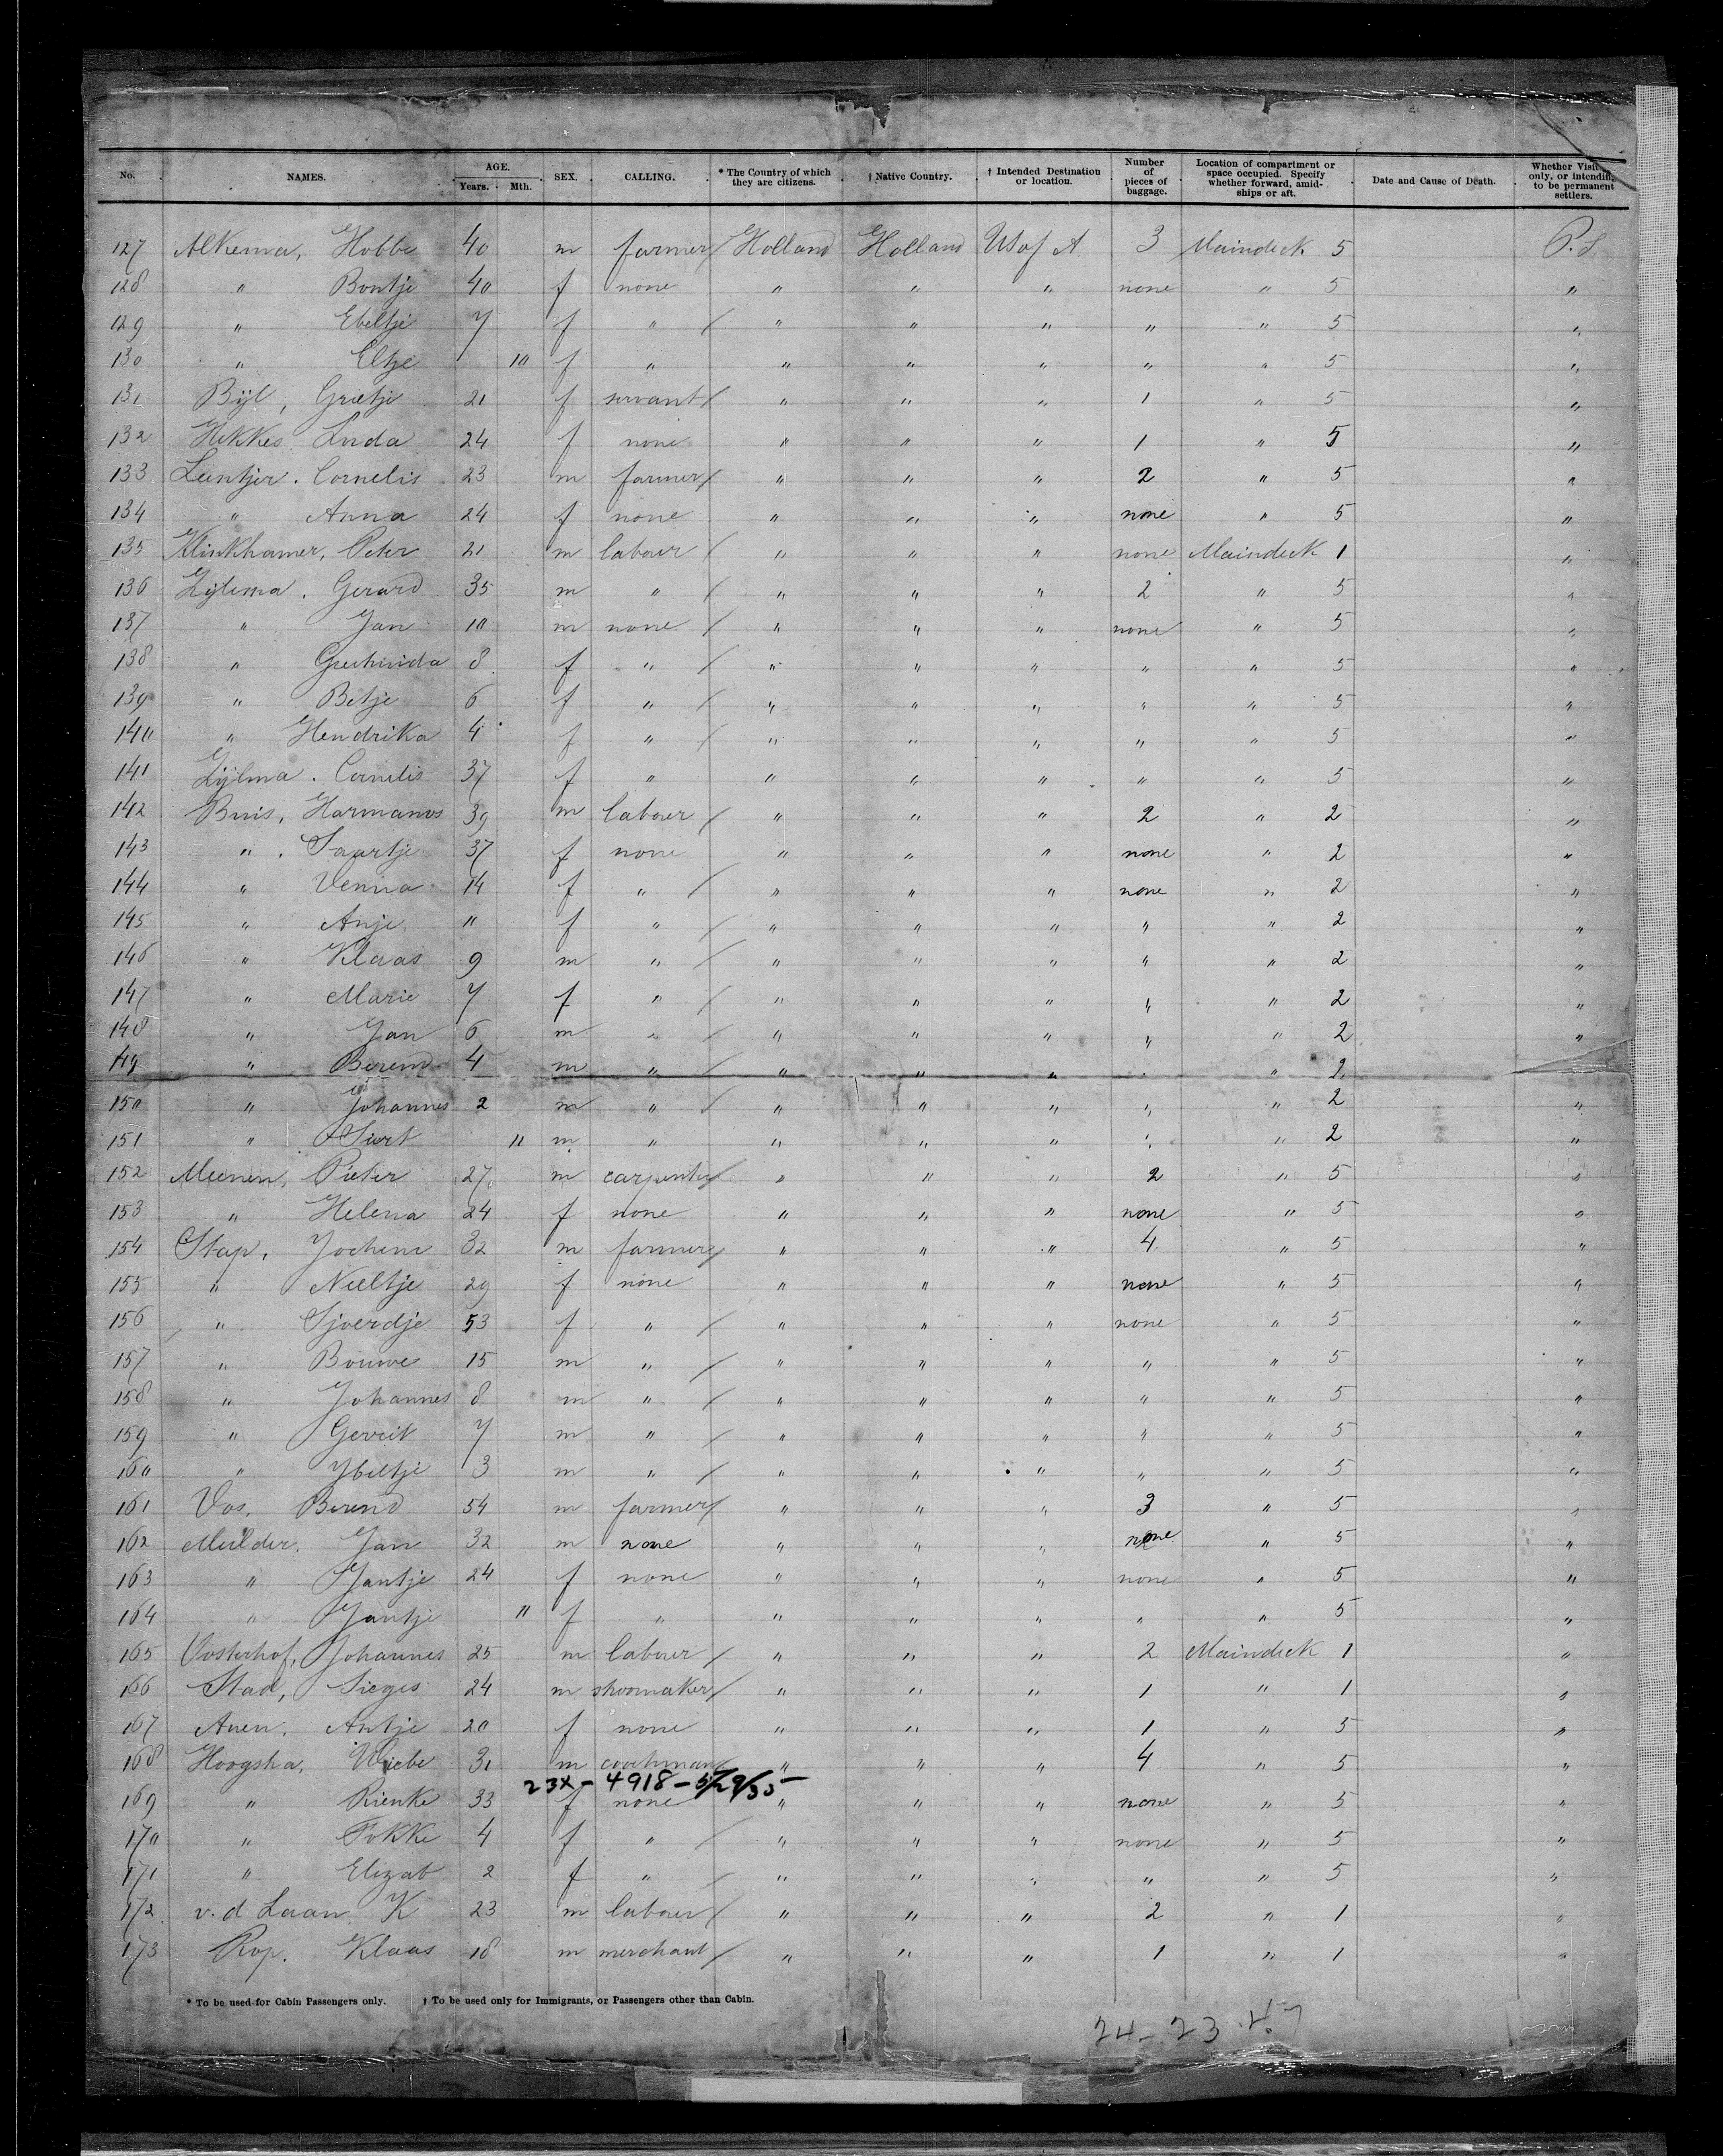 No. NAMES. AGE. Years. Mth. SEX. CALLING. * The Country of which they are citizens. † Native Country. † Intended Destination or location. Number of pieces of baggage. Location of compartment or space occupied. Specify whether forward, amidships or aft. Date and Cause of Death. Whether Visit only, or intendin, to be permanent settlers.
127 Alkema, Hobbe 40 m farmer / Holland Holland U S of A 3 Maindeck 5 P.S.
128 " Bontje 40 f none " " " none " 5 "
129 " Ebeltje 7 f " / " " " " " 5 "
130 " Eltje 10 f " " " " " " 5 "
131 Bijl, Grietje 21 f servant / " " " 1 " 5 "
132 Hekkes Luda 24 f none " " " 1 " 5 "
133 Leentjer. Cornelis 23 m farmer / " " " 2 " 5 "
134 " Anna 24 f none " " " none " 5 "
135 Klinkhamer, Peter 21 m labour / " " " none Maindeck 1 "
136 Zylema, Gerard 35 m " / " " " 2 " 5 "
137 " Jan 10 m none / " " " none " 5 "
138 " 8 f " / " " " " " 5 "
139 " Betje 6 f " / " " " " " 5 "
140 " Hendrika 4 f " / " " " " " 5 "
141 Zijlma. Cornelis 37 f " " " " " " 5 "
142 Buis, Harmanus 39 m labour / " " " 2 " 2 "
143 " Saartje 37 f none " " " none " 2 "
144 " Venna 14 f " / " " " none " 2 "
145 " Anje 11 f " / " " " " " 2 "
146 " Klaas 9 m " / " " " " " 2 "
147 " Marie 7 f " / " " " " " 2 "
148 " Jan 6 m " / " " " " " 2 "
149 " Berend 4 m " / " " " " " 2 "
150 " Johannes 2 m " / " " " " " 2 "
151 " Siert 11 m " " " " " " 2 "
152 Meenen, Pieter 27 m carpenter / " " " 2 " 5 "
153 " Helena 24 f none " " " none " 5 "
154 Stap, Jochem 32 m farmer / " " " 4 " 5 "
155 " Neeltje 29 f none " " " none " 5 "
156 " Sjoerdje 53 f " / " " " none " 5 "
157 " Bouwe 15 m " / " " " " " 5 "
158 " Johannes 8 m " / " " " " " 5 "
159 " Gerrit 7 m " / " " " " " 5 "
160 " Ybeltje 3 m " / " " " " " 5 "
161 Vos, Berend 54 m farmer / " " " 3 " 5 "
162 Mulder, Jan 32 m none " " " none " 5 "
163 " Jantje 24 f none " " " none " 5 "
164 " Jantje 11 f " " " " " " 5 "
165 Oosterhof, Johannes 25 m labour / " " " 2 Maindeck 1 "
166 Stad, Sieges 24 m shoomaker / " " " 1 " 1 "
167 Auen, Antje 20 f none " " " 1 " 5 "
168 Hoogsha, Wiebe 31 m coachman / " " " 4 " 5 "
23X - 4918 - 5/29/35
169 " Rienke 33 f none " " " none " 5 "
170 " Fokke 4 f " / " " " none " 5 "
171 " Elizab 2 f " / " " " " " 5 "
172 v. d Laan K 23 m labour / " " " 2 " 1 "
173 Rop. Klaas 18 m merchant / " " " 1 " 1 "
* To be used for Cabin Passengers only. † To be used only for Immigrants, or Passengers other than Cabin.
24 - 23